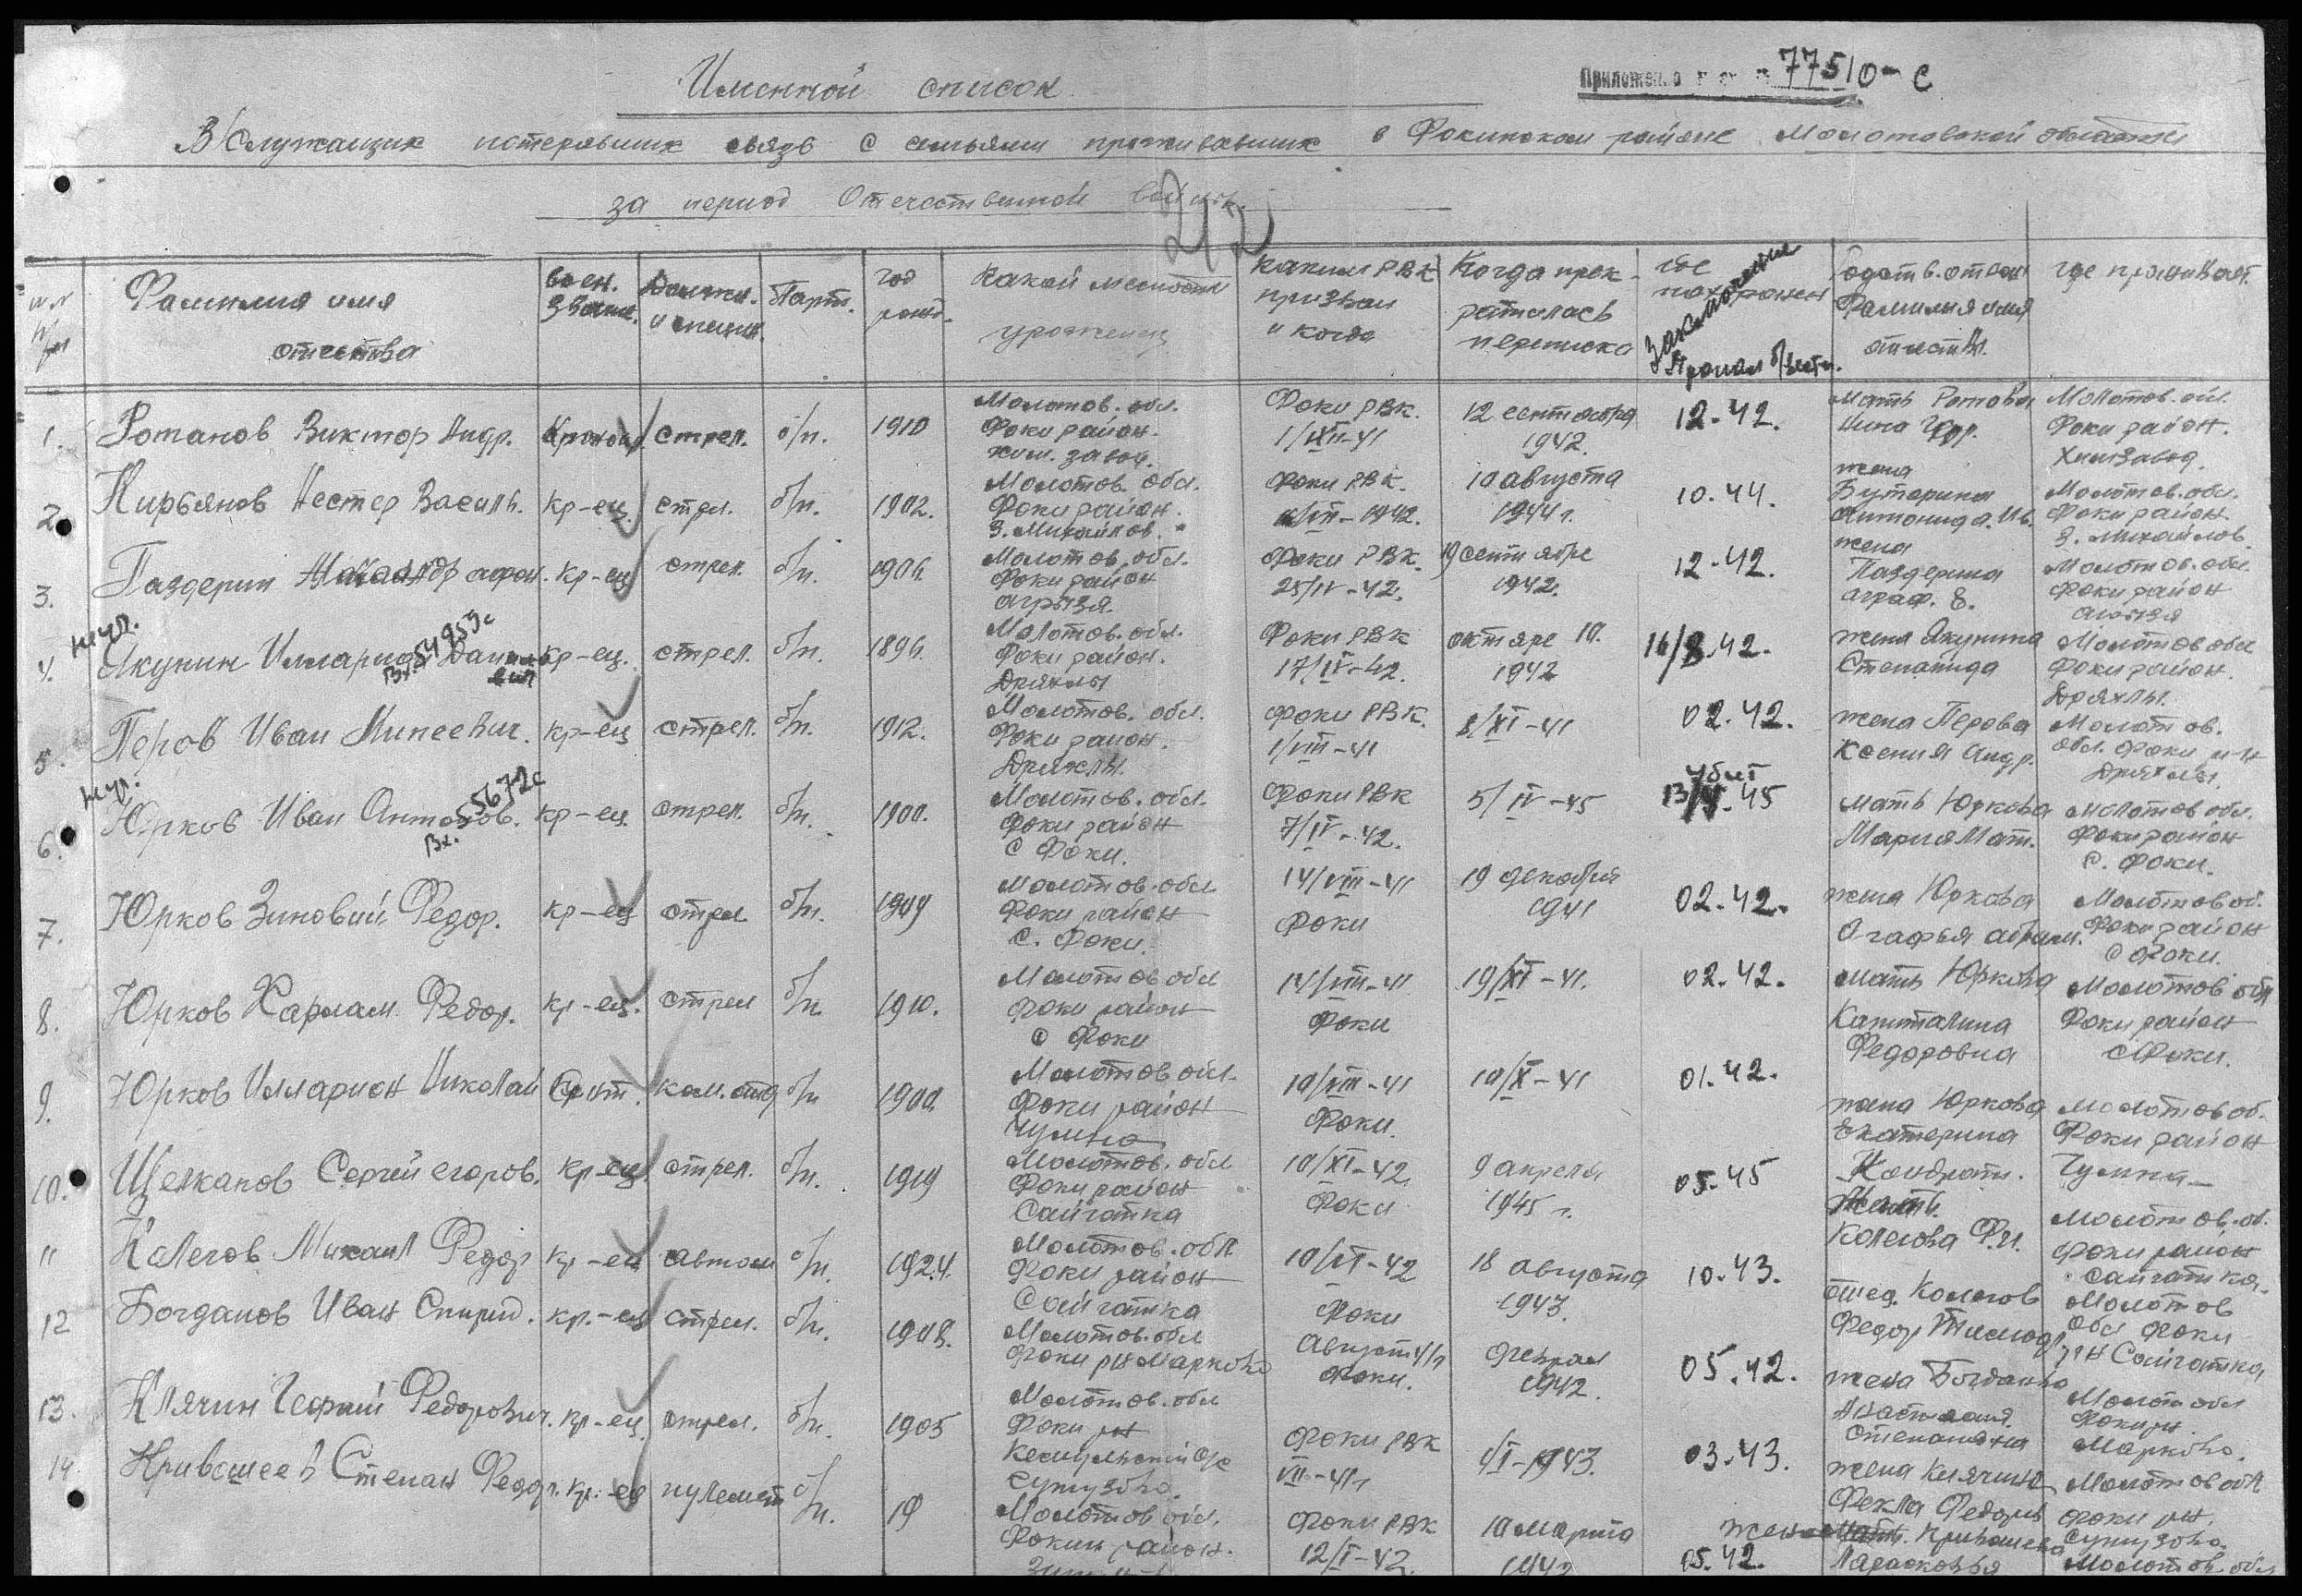 Именной список
Приложен 77510-с
В/служащих потерявших связь с семьями проживавших в Фокинском районе Молотовской области
за период Отечественной войны.
212
Фамилия имя отчества
Воен. Звание.
Должн. и специ.
Парт.
Год рожд.
Какой местности уроженец
Каким РВК призван и когда
Когда прекратилась переписка
где похоронен
Заключение
Пропал б/вести.
Фамилия имя отчеств.
где проживает.
1. Ротанов Виктор Андр. стрел. б/п. 1910 Молотов. обл. Фоки район. хим. завод. Фоки РВК. 12 сентября 1942. 12.42. Мать Молотов. обл. Фоки район. Химзавод.
2. Кирьянов Нестер Василь. Кр-ец. стрел. б/п. 1902. Молотов. обл. Фоки район. З. Михайлов. Фоки РВК. 10 августа 1944 г. 10.44. жена Бутарина Антонида. Ив. Молотов. обл. Фоки район. З. Михайлов.
3. Паздерин Кр-ец стрел. б/п. 1906. Молотов. обл. Фоки район Фоки РВК. 25/IV-42. 19 сентября 1942. 12.42. жена Паздерина Аграф. Е. Молотов. обл. Фоки район
неуч.
4. Якунин Илларион Вх. 54959с Кр-ец. стрел. б/п. 1896. Молотов. обл. Фоки район. Дряхлы Фоки РВК 17/IV-42. октябре 10. 1942 16/8.42. жена Якунина Степанида Молотов обл Фоки район. Дряхлы.
5. Перов Иван Минеевич. Кр-ец стрел. б/п. 1912. Молотов. обл. Фоки район. Дряхлы. Фоки РВК. 1/VIII-41 8/XI-41 02.42. жена Перова Ксения Андр. Молотов. обл. Фоки р-н Дряхлы.
неуч.
6. Юрков Иван Антонов. Вх. 55672с Кр-ец. стрел. б/п. 1900. Молотов. обл. Фоки район с Фоки. Фоки РВК 7/IV-42. 5/IV-45 убит мать Юркова Мария Мат. Молотов обл. Фоки район с. Фоки.
7. Юрков Зиновий Федор. Кр-ец стрел б/п. 1909 Молотов. обл Фоки район с. Фоки. 14/VIII-41 Фоки 19 декабря 1941 02.42. жена Юркова Агафья Молотов об. Фоки район с Фоки.
8. Юрков Харлам. Федор. Кр-ец. стрел б/п. 1910. Молотов обл Фоки район с Фоки 14/VIII-41 Фоки 19/XI-41. 02.42. Мать Юркова Капиталина Федоровна Молотов обл Фоки район с Фоки.
9. Юрков Илларион Николай ком. отд б/п 1900. Молотов обл. Фоки район Чумна 10/VIII-41 Фоки. 10/X-41 01.42. жена Юркова Екатерина Кондрат. Молотов об. Фоки район Чумна
10. Щелканов Сергей Егоров. Кр-ец стрел. б/п. 1919 Молотов. обл Фоки район Сайгатка 10/XI-42 Фоки 9 апреля 1945 г. 05.45 Колегова Ф.И. Молотов. об. Фоки район Сайгатка.
11 Колегов Михаил Федор Кр-ец автом б/п. 1924. Молотов. обл Фоки район Сайгатка 10/VI-42 Фоки 18 августа 1943. 10.43. отец. Колегов Федор Молотов обл Фоки р-н Сайгатка
12 Богданов Иван Спирид. Кр.-ец стрел. б/п. 1908. Молотов. обл Фоки рн Марково Август 41 г Фоки. феврал 1942. 05.42. жена Богданова Степановна Молотов обл Фоки рн. Марково.
13. Клячин Георгий Федорович. Кр-ец. стрел. б/п. 1905 Молотов. обл Фоки рн Фоки РВК VII-41 г 03.43. жена Клячина Фекла Федоров Молотов обл Фоки рн.
14 Кривощеев Степан Федор. Кр.-ец пулемет б/п. 19 Молотов обл. Фокин район. Фоки РВК 12/I-42. 10 марта 1942 05.42. жена Парасковья Молотов. обл